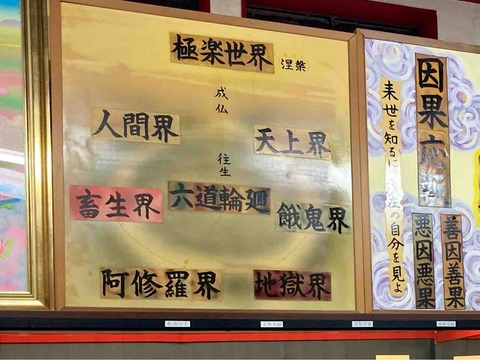 極楽世界
涅槃
成仏
人間界
天上界
往生
畜生界
六道輪廻
餓鬼界
阿修羅界
地獄界
因果応
来世を知るに
の自分を見よ
善因善果
悪因悪果